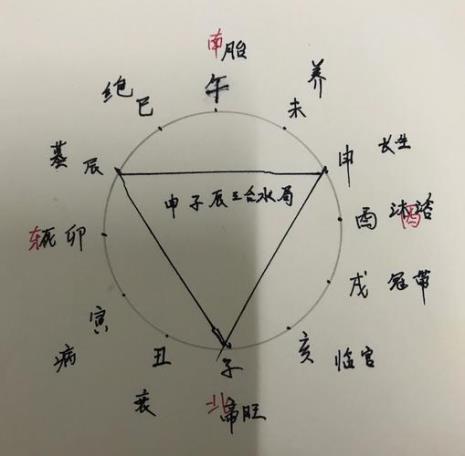 南胎
午
养
未
绝 巳
墓 辰
申 长生
申子辰三合水局
酉 沐浴
东死 卯
戌 冠带
寅
病
丑
衰
子
北帝旺
亥 临官